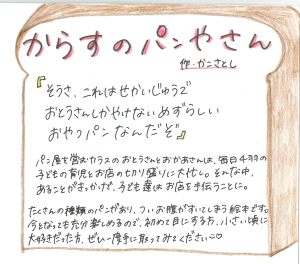 からすのパンやさん
作・かこさとし
『そうさ、これはせかいじゅうで
おとうさんしかやけないめずらしい
おやつパンなんだぞ』
パン屋を営むカラスのおとうさんとおかあさんは、毎日4羽の
子どもの育児とお店の切り盛りに大忙し。そんな中、
あることがきっかけで、子ども達はお店を手伝うことに。
たくさんの種類のパンがあり、ついお腹がすいてしまう絵本です。
今となっても充分楽しめるので、初めて目にする方、小さい頃に
大好きだった方、ぜひ一度手に取ってみてください♡